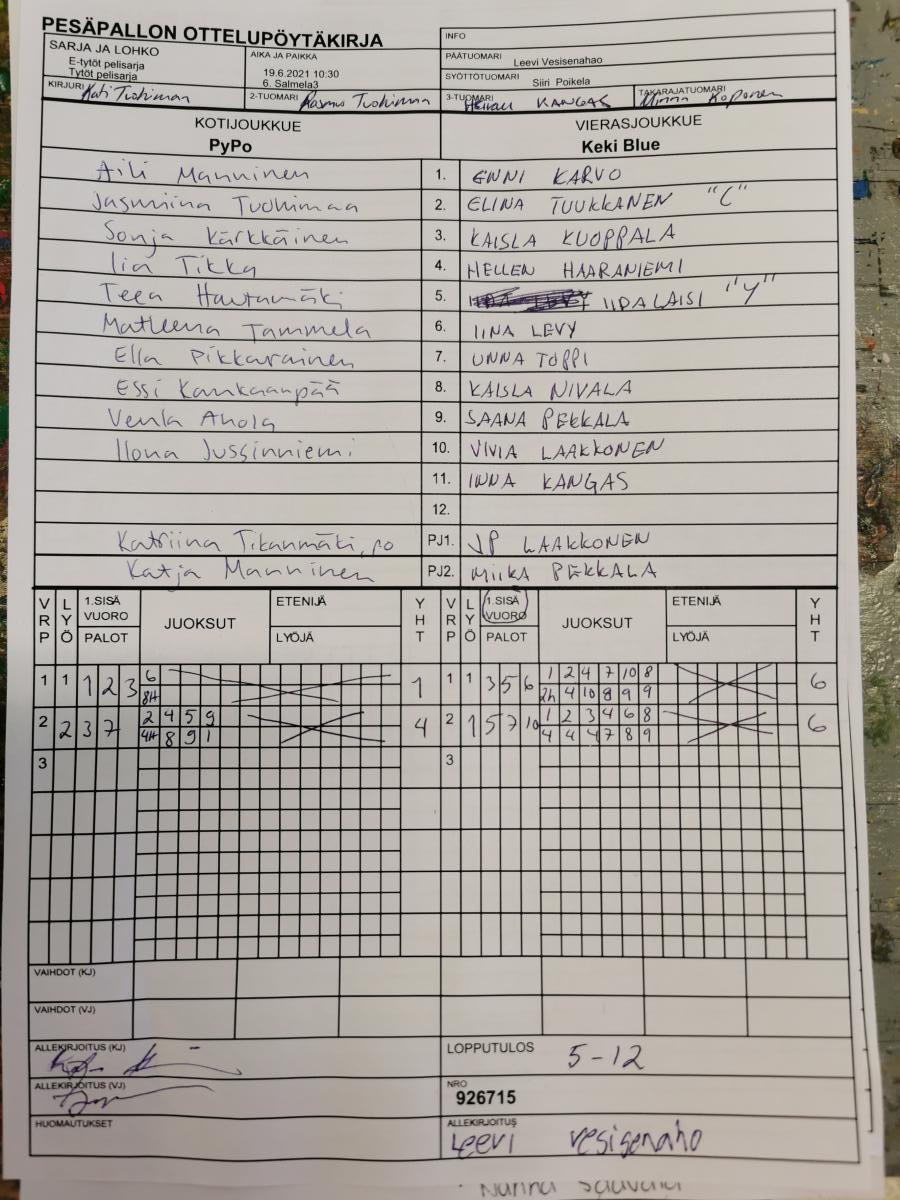 PESÄPALLON OTTELUPÖYTÄKIRJA
INFO
SARJA JA LOHKO
E-tytöt pelisarja
Tytöt pelisarja
AIKA JA PAIKKA
19.6.2021 10:30
6. Salmela3
PÄÄTUOMARI Leevi Vesisenahao
SYÖTTÖTUOMARI Siiri Poikela
KIRJURI Kati Tuohimaa
2-TUOMARI Rasmus Tuohimaa
3-TUOMARI KANGAS
TAKARAJATUOMARI Minna Koponen
KOTIJOUKKUE VIERASJOUKKUE
PyPo Keki Blue
Aili Manninen 1. ENNI KARVO
Jasmiina Tuohimaa 2. ELINA TUUKKANEN "C"
Sonja Kärkkäinen 3. KAISLA KUOPPALA
Iia Tikka 4. HELLEN HAARANIEMI
Teea Hautamäki 5. IIDA LAISI "Y"
Matleena Tammela 6. IINA LEVY
Ella Pikkarainen 7. UNNA TOPPI
Essi Kankaanpää 8. KAISLA NIVALA
Venla Ahola 9. SAANA PEKKALA
Ilona Jussinniemi 10. VIVIA LAAKKONEN
11. INNA KANGAS
12.
Katriina Tikanmäki, po PJ1. JP LAAKKONEN
Katja Manninen PJ2. MIIKA PEKKALA
VRP LYÖ 1.SISÄ VUORO PALOT JUOKSUT ETENIJÄ LYÖJÄ YHT VRP LYÖ 1.SISÄ VUORO PALOT JUOKSUT ETENIJÄ LYÖJÄ YHT
1 1 1 2 3 6 1 1 1 3 5 6 1 2 4 7 10 8 6
8H 2h 4 10 8 9 9
2 2 3 7 2 4 5 9 4 2 1 5 7 10 1 2 3 4 6 8 6
4H 8 9 1 4 4 4 7 8 9
3 3
VAIHDOT (KJ)
VAIHDOT (VJ)
ALLEKIRJOITUS (KJ)
LOPPUTULOS 5-12
ALLEKIRJOITUS (VJ)
NRO
926715
HUOMAUTUKSET
ALLEKIRJOITUS
Leevi Vesisenaho